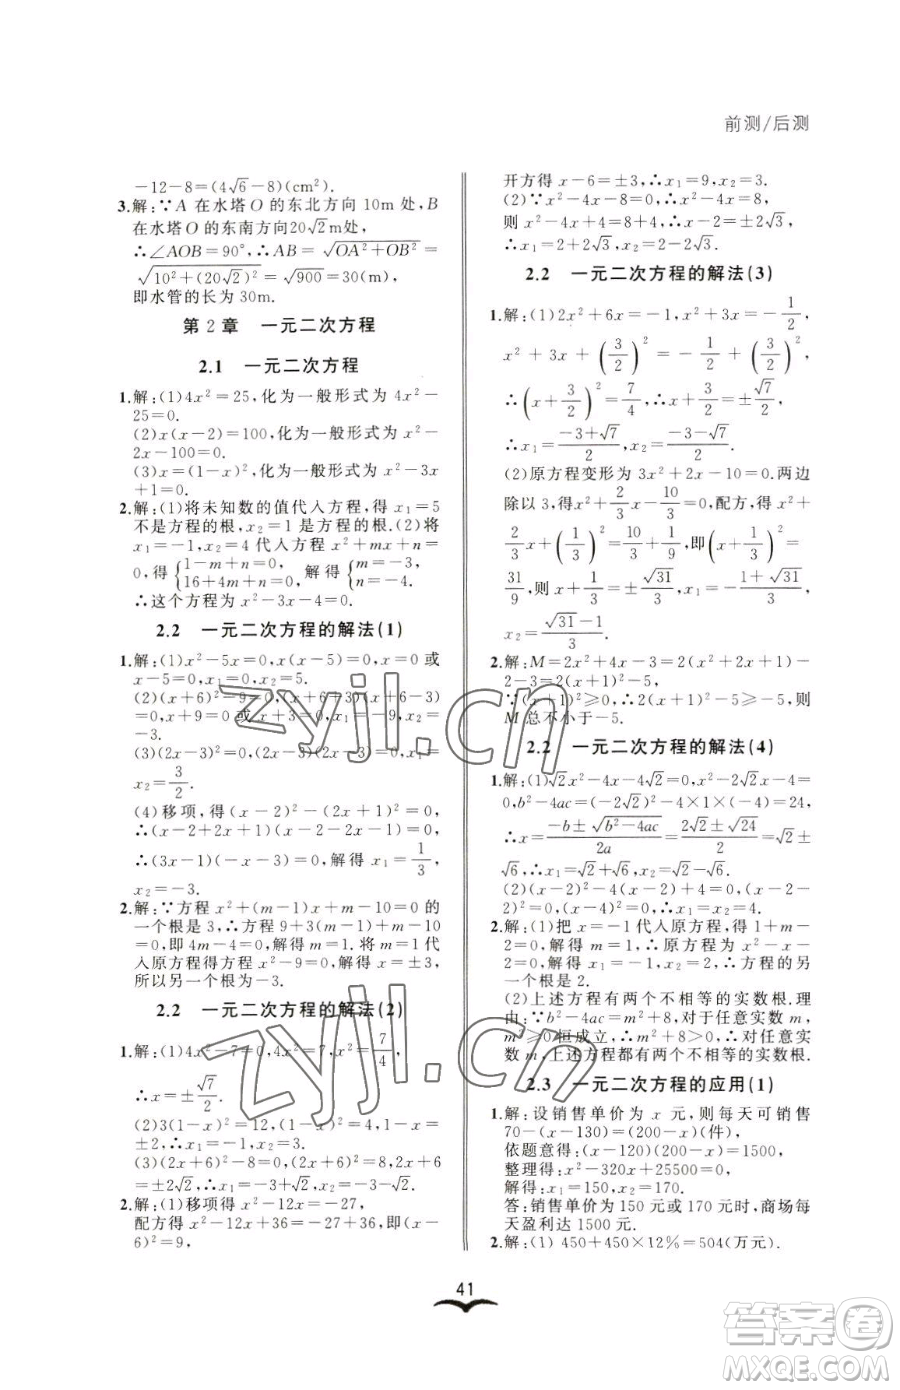 前测/后测
-12-8=(4√6-8)(cm²).
3.解:∵A 在水塔 O 的东北方向 10m 处,B
在水塔 O 的东南方向20√2m处,
∴∠AOB=90°,∴AB=√(OA²+OB²)=
√(10²+(20√2)²)=√900=30(m),
即水管的长为 30m.
第 2 章 一元二次方程
2.1 一元二次方程
1.解:(1)4x²=25,化为一般形式为 4x²-
25=0.
(2)x(x-2)=100,化为一般形式为 x²-
2x-100=0.
(3)x=(1-x)²,化为一般形式为 x²-3x
+1=0.
2.解:(1)将未知数的值代入方程,得 x₁=5
不是方程的根,x₂=1 是方程的根.(2)将
x₁=-1,x₂=4 代入方程 x²+mx+n
=0,得{1-m+n=0, 16+4m+n=0, 解得{m=-3, n=-4.
∴这个方程为 x²-3x-4=0.
2.2 一元二次方程的解法(1)
1.解:(1)x²-5x=0,x(x-5)=0,x=0 或
x-5=0,∴x₁=0,x₂=5.
(2)(x+6)²-9=0,(x+6+3)(x+6-3)
=0,x+9=0 或 x+3=0,∴x₁=-9,x₂=
-3.
(3)(2x-3)²=0,2x-3=0,∴x₁=
x₂=3/2.
(4)移项,得(x-2)²-(2x+1)²=0,
∴(x-2+2x+1)(x-2-2x-1)=0,
∴(3x-1)(-x-3)=0,解得 x₁=1/3,
x₂=-3.
2.解:∵方程 x²+(m-1)x+m-10=0 的
一个根是 3,∴方程 9+3(m-1)+m-10
=0,即 4m-4=0,解得 m=1. 将 m=1 代
入原方程得方程 x²-9=0,解得 x=±3,
所以另一个根为-3.
2.2 一元二次方程的解法(2)
1.解:(1)4x²-7=0,4x²=7,x²=7/4,
∴x=±√7/2.
(2)3(1-x)²=12,(1-x)²=4,1-x=
±2,∴x₁=-1,x₂=3.
(3)(2x+6)²-8=0,(2x+6)²=8,2x+6
=±2√2,∴x₁=-3+√2,x₂=-3-√2.
2.解:(1)移项得 x²-12x=-27,
配方得 x²-12x+36=-27+36,即(x-
6)²=9,
开方得 x-6=±3,∴x₁=9,x₂=3.
(2)∵x²-4x-8=0,∴x²-4x=8,
则 x²-4x+4=8+4,∴x-2=±2√3,
∴x₁=2+2√3,x₂=2-2√3.
2.2 一元二次方程的解法(3)
1.解:(1)2x²+6x=-1,x²+3x=-1/2,
x²+3x+(3/2)²=-1/2+(3/2)²,
∴(x+3/2)²=7/4,∴x+3/2=±√7/2,
∴x₁=(-3+√7)/2,x₂=(-3-√7)/2.
(2)原方程变形为 3x²+2x-10=0.两边
除以 3,得x²+2/3x-10/3=0,配方,得 x²+
2/3x+(1/3)²=10/3+1/9,即(x+1/3)²=
31/9,则 x+1/3=±√31/3,x₁=-(1+√31)/3,
x₂=(√31-1)/3.
2.解:M=2x²+4x-3=2(x²+2x+1)
-2-3=2(x+1)²-5,
∵(x+1)²≥0,∴2(x+1)²-5≥-5,则
M 总不小于-5.
2.2 一元二次方程的解法(4)
1.解:(1)√2x²-4x-4√2=0,x²-2√2x-4=
0,b²-4ac=(-2√2)²-4×1×(-4)=24,
∴x=(-b±√(b²-4ac))/2a=(2√2±√24)/2=√2±
√6,∴x₁=√2+√6,x₂=√2-√6.
(2)(x-2)²-4(x-2)+4=0,
(x-4)²=0,∴x₁=x₂=4.
2.解:(1)把 x=-1 代入原方程,得 1+m
-2=0,解得 m=1,∴原方程为 x²-x-
2=0.解得 x₁=-1,x₂=2,∴方程的另
一个根是 2.
(2)上述方程有两个不相等的实数根.理
由:∵b²-4ac=m²+8,对于任意实数 m,
m²≥0恒成立,∴m²+8>0,∴对任意实
数 m,上述方程都有两个不相等的实数根.
2.3 一元二次方程的应用(1)
1.解:设销售单价为 x 元,则每天可销售
70-(x-130)=(200-x)(件),
依题意得:(x-120)(200-x)=1500,
整理得:x²-320x+25500=0,
解得:x₁=150,x₂=170.
答:销售单价为 150 元或 170 元时,商场每
天盈利达 1500 元.
2.解:(1) 450+450×12%=504(万元).
41
zyjl.cn
zyjl.cn
答案圈
MXQE.COM